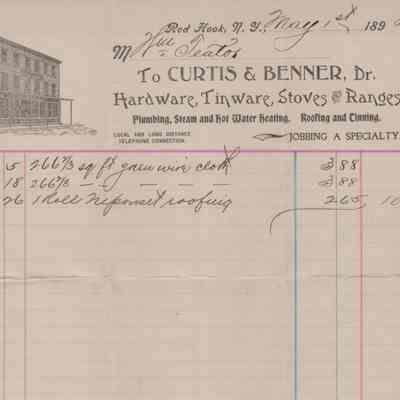 Red Hook, N. Y., May 1st 189
M Wm Teator
To CURTIS & BENNER, Dr.
Hardware, Tinware, Stoves and Ranges
Plumbing, Steam and Hot Water Heating. Roofing and Tinning.
LOCAL AND LONG DISTANCE
TELEPHONE CONNECTION.
JOBBING A SPECIALTY.
5 266⅔ sq ft wire cloth 3 88
18 266⅔ — — — — — 3 88
26 1 Roll Neponset roofing 2 65 10